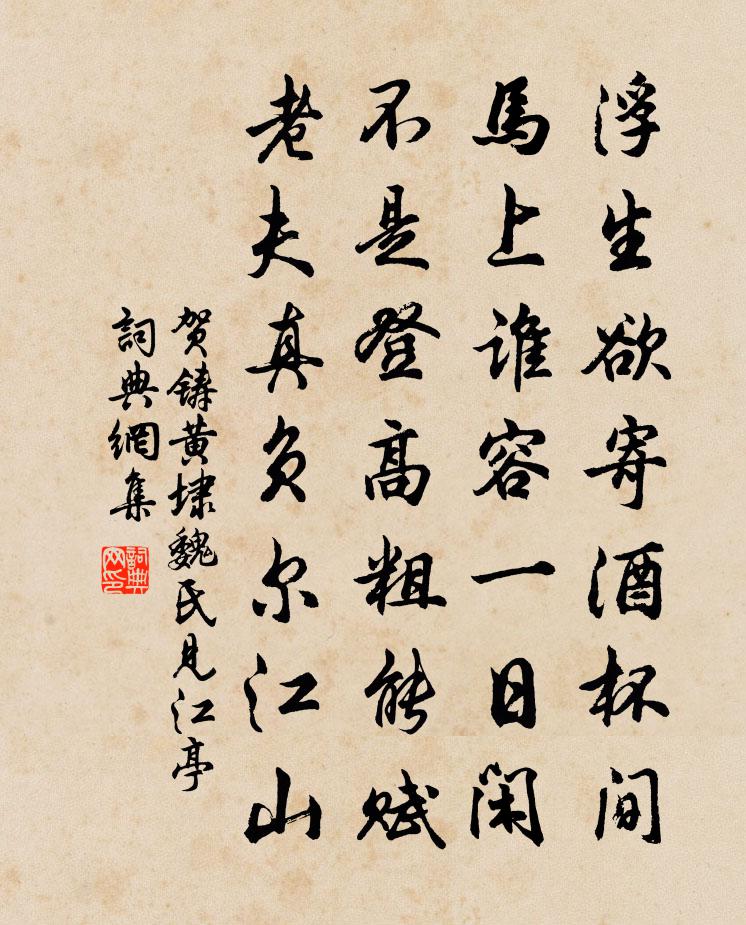 浮生欲寄酒杯间
馬上谁容一日闲
不是登高粗能赋
老夫真负尔江山
贺铸黄埭魏氏见江亭
詞典網集
詞典网印